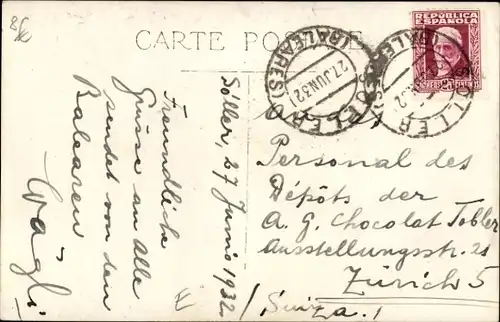 CARTE POSTALE
REPÚBLICA
ESPAÑOLA
25
SOLLER
27 JUN 32
(BALEARES)
SOLLER
(BALEARES)
Soller, 27 Junio 1932
Freundliche
Grüsse an alle
sendet von den
Balearen
Wägli
Personal des
Dépôts der
A. G. Chocolat Tobler
Ausstellungsstr. 21
Zürich 5
/Suiza./